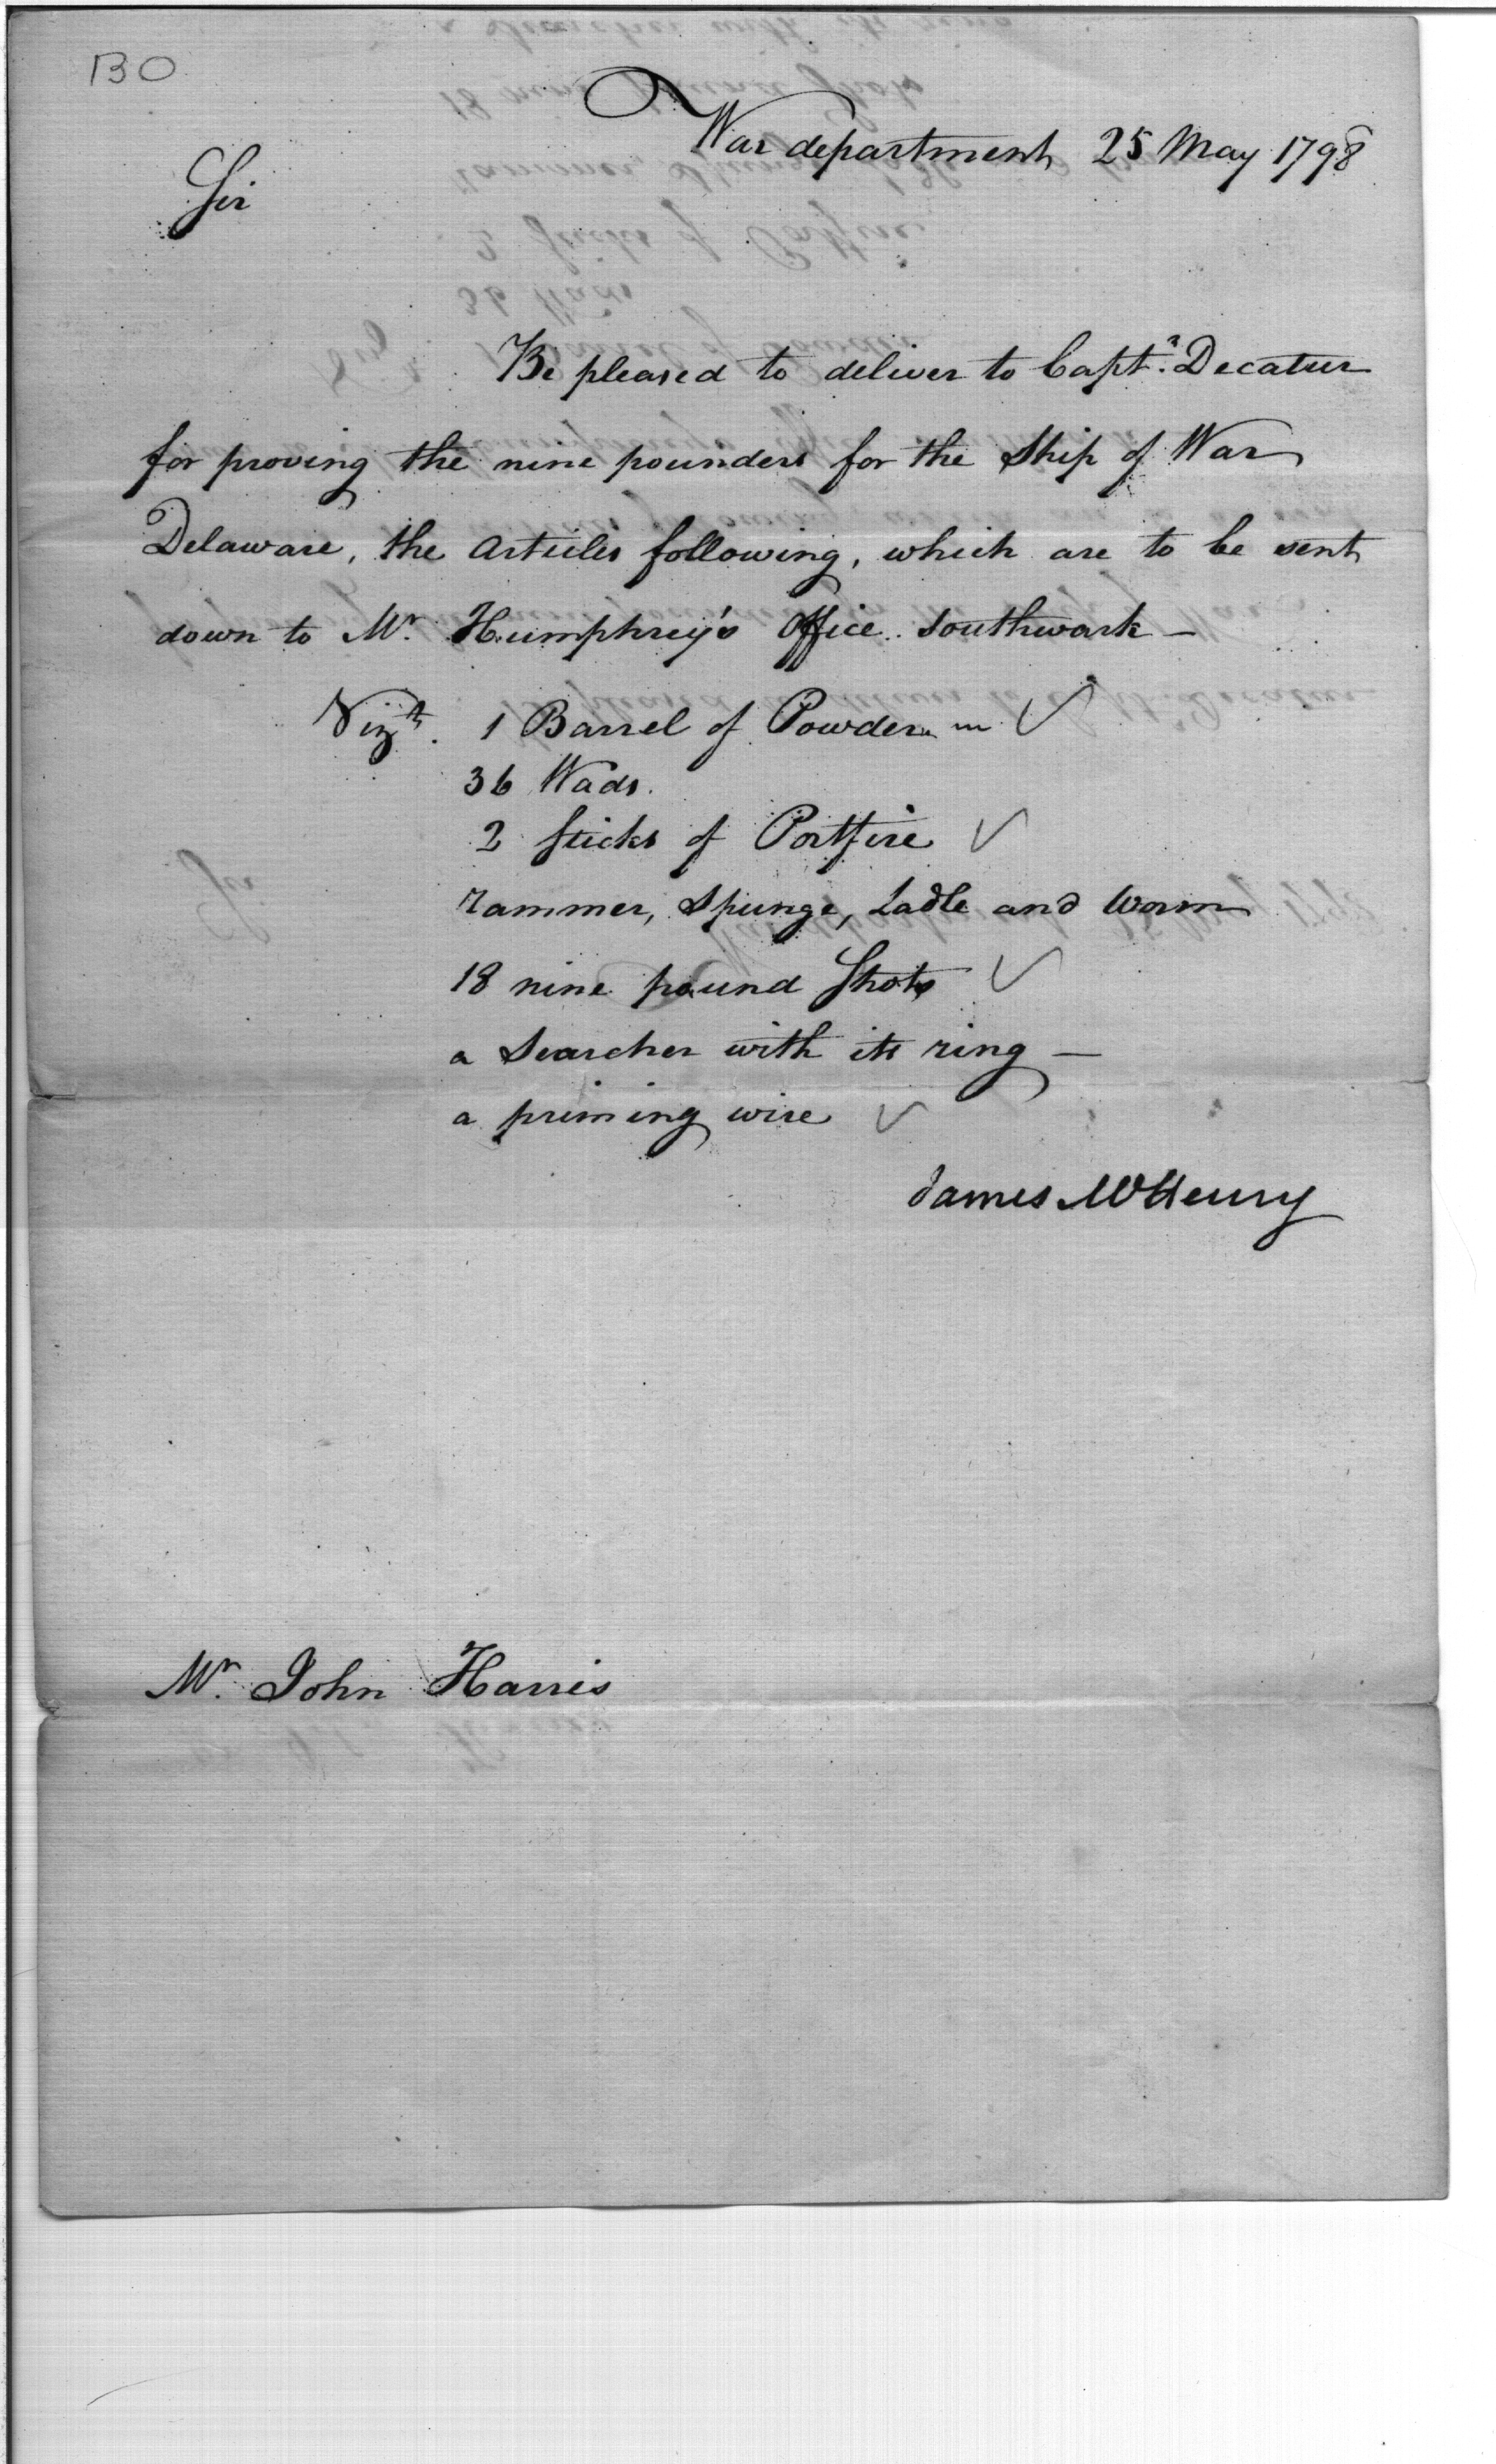 BO
War department 25 May 1798
Sir
Be pleased to deliver to Captn. Decatur
for proving the nine pounders for the Ship of War
Delaware, the Articles following, which are to be sent
down to Mr. Humphrey's Office Southwark —
Vizt. 1 Barrel of Powder ✓
36 Wads.
2 Sticks of Portfire ✓
rammer, Spunge, Ladle and Worm
18 nine pound Shots ✓
a Searcher with its ring —
a priming wire ✓
James McHenry
Mr. John Harris